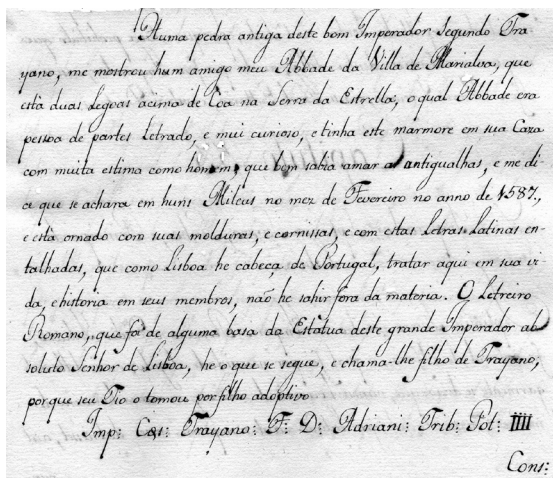 Huma pedra antiga deste bom Imperador segundo Tra-
yano, me mostrou hum amigo meu Abbade da Villa de Marialva, que
está duas Legoas acima de Coa na Serra da Estrella, o qual Abbade era
pessoa de partes Letrado, e mui curioso, e tinha este marmore em sua Caza
com muita estima como homem, que bem sabia amar as antigualhas, e me di-
ce que se achara em huns Mileus no mez de Fevereiro no anno de 1587.,
e está ornado com suas molduras, e cornissas, e com estas Letras Latinas en-
talhadas, que como Lisboa he cabeça de Portugal, tratar aqui em sua vi-
da, e historia em seus membros, não he sahir fora da materia. O Letreiro
Romano, que foi de alguma basa da Estatua deste grande Imperador ab
soluto Senhor de Lisboa, he o que se segue, e chama-lhe filho de Trayano,
porque seu Tio o tomou por filho adoptivo
Imp: Cæs: Trayano: F: D: Adriani: Trib: Pot: IIII
Cons: